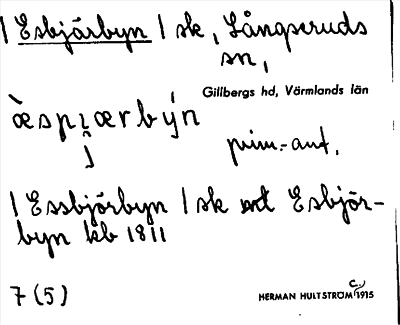 | Esbjärbyn | sk, Långseruds
sn,
Gillbergs hd, Värmlands län
prim.-ant.
| Essbjörbyn | sk Esbjör-
byn kb 1811
7 (5)
HERMAN HULTSTRÖM C. 1915